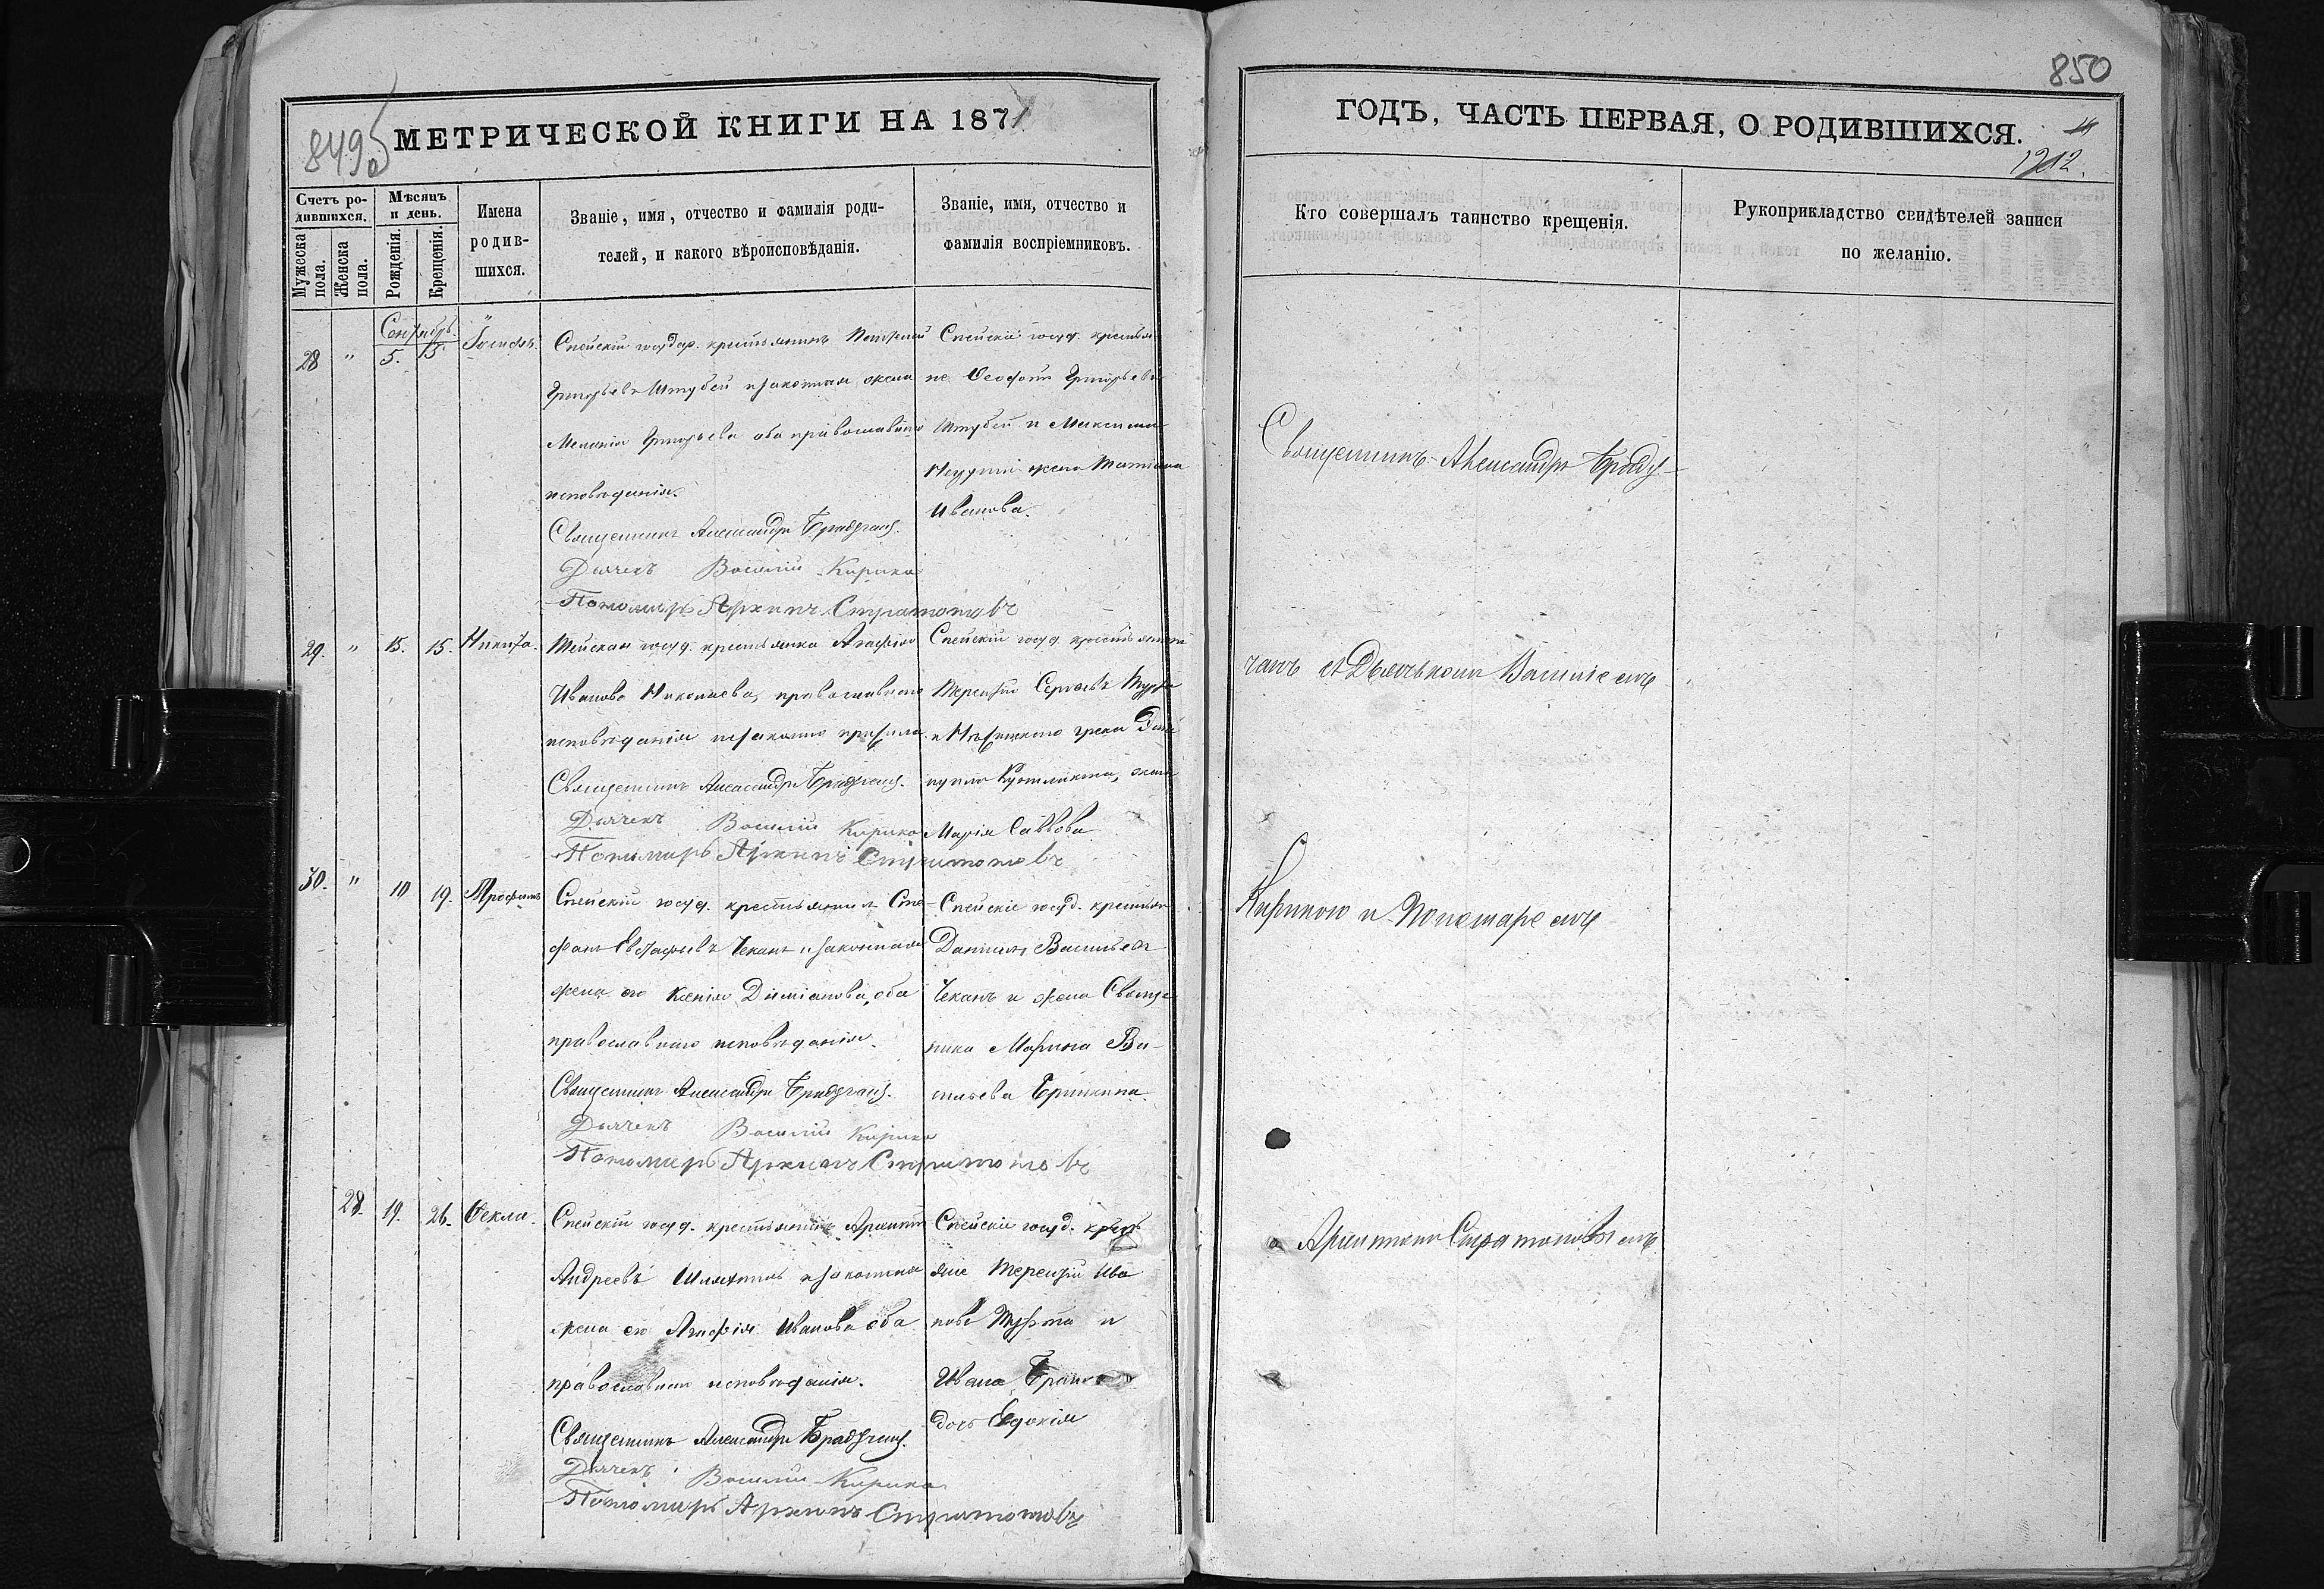 МЕТРИЧЕСКОЙ КНИГИ НА 1871
849 об
Счетъ родившихся.
Мужеска пола.
Женска пола.
Мѣсяцъ и день.
Рожденія.
Крещенія.
Имена родившихся.
Званіе, имя, отчество и фамилія родителей, и какого вѣроисповѣданія.
Званіе, имя, отчество и фамилія воспріемниковъ.
Сентябрь.
28 " 5. 15. Іосифъ.
Спейскій государ. крестьянинъ
Григорьевъ Штубей и законная жена
Меланія Григорьева оба православнаго
исповѣданія.
Священникъ Александръ Брадучанъ.
Дьячекъ Василій Кирика
Пономарь Архипъ Стратоновъ
Спейскіе госуд. крестья
не Ѳеофанъ Григорьевъ
Штубей и Максима
жена Татіана
Иванова.
29. " 15. 15. Никита.
госуд. крестьянка Агафія
Иванова Николаева, православнаго
исповѣданія незаконно прижила.
Священникъ Александръ Брадучанъ.
Дьячекъ Василій Кирика
Пономарь Архипъ Стратоновъ
Спейскій госуд. крестьянинъ
Терентій Сергѣевъ
и Нѣжинскаго грека
жена
Марія Саввова
30. " 10 19. Трофимъ
Спейскій госуд. крестьянинъ Сте-
фанъ Евстафьевъ Чеканъ и законная
жена его Ксенія Диміанова, оба
православнаго исповѣданія.
Священникъ Александръ Брадучанъ.
Дьячекъ Василій Кирика
Пономарь Архипъ Стратоновъ
Спейскіе госуд. крестьян
Даниилъ Васильевъ
Чеканъ и жена Священ
ника Марина Ва-
сильева
28. 19. 26. Ѳекла.
Спейскій госуд. крестьянинъ Архипъ
Андреевъ и законная
жена его Агафія Иванова оба
православнаго исповѣданія.
Священникъ Александръ Брадучанъ.
Дьячекъ Василій Кирика
Пономарь Архипъ Стратоновъ
Спейскіе госуд. крест
яне Терентій Ива
новъ и
Ивана
дочь Евдокія
850
ГОДЪ, ЧАСТЬ ПЕРВАЯ, О РОДИВШИХСЯ.
Кто совершалъ таинство крещенія.
Рукоприкладство свидѣтелей записи по желанію.
Священникъ Александръ Браду-
чанъ съ Дьячькомъ Василіемъ
Кирикою и Пономаремъ
Архиппомъ Стратоновымъ